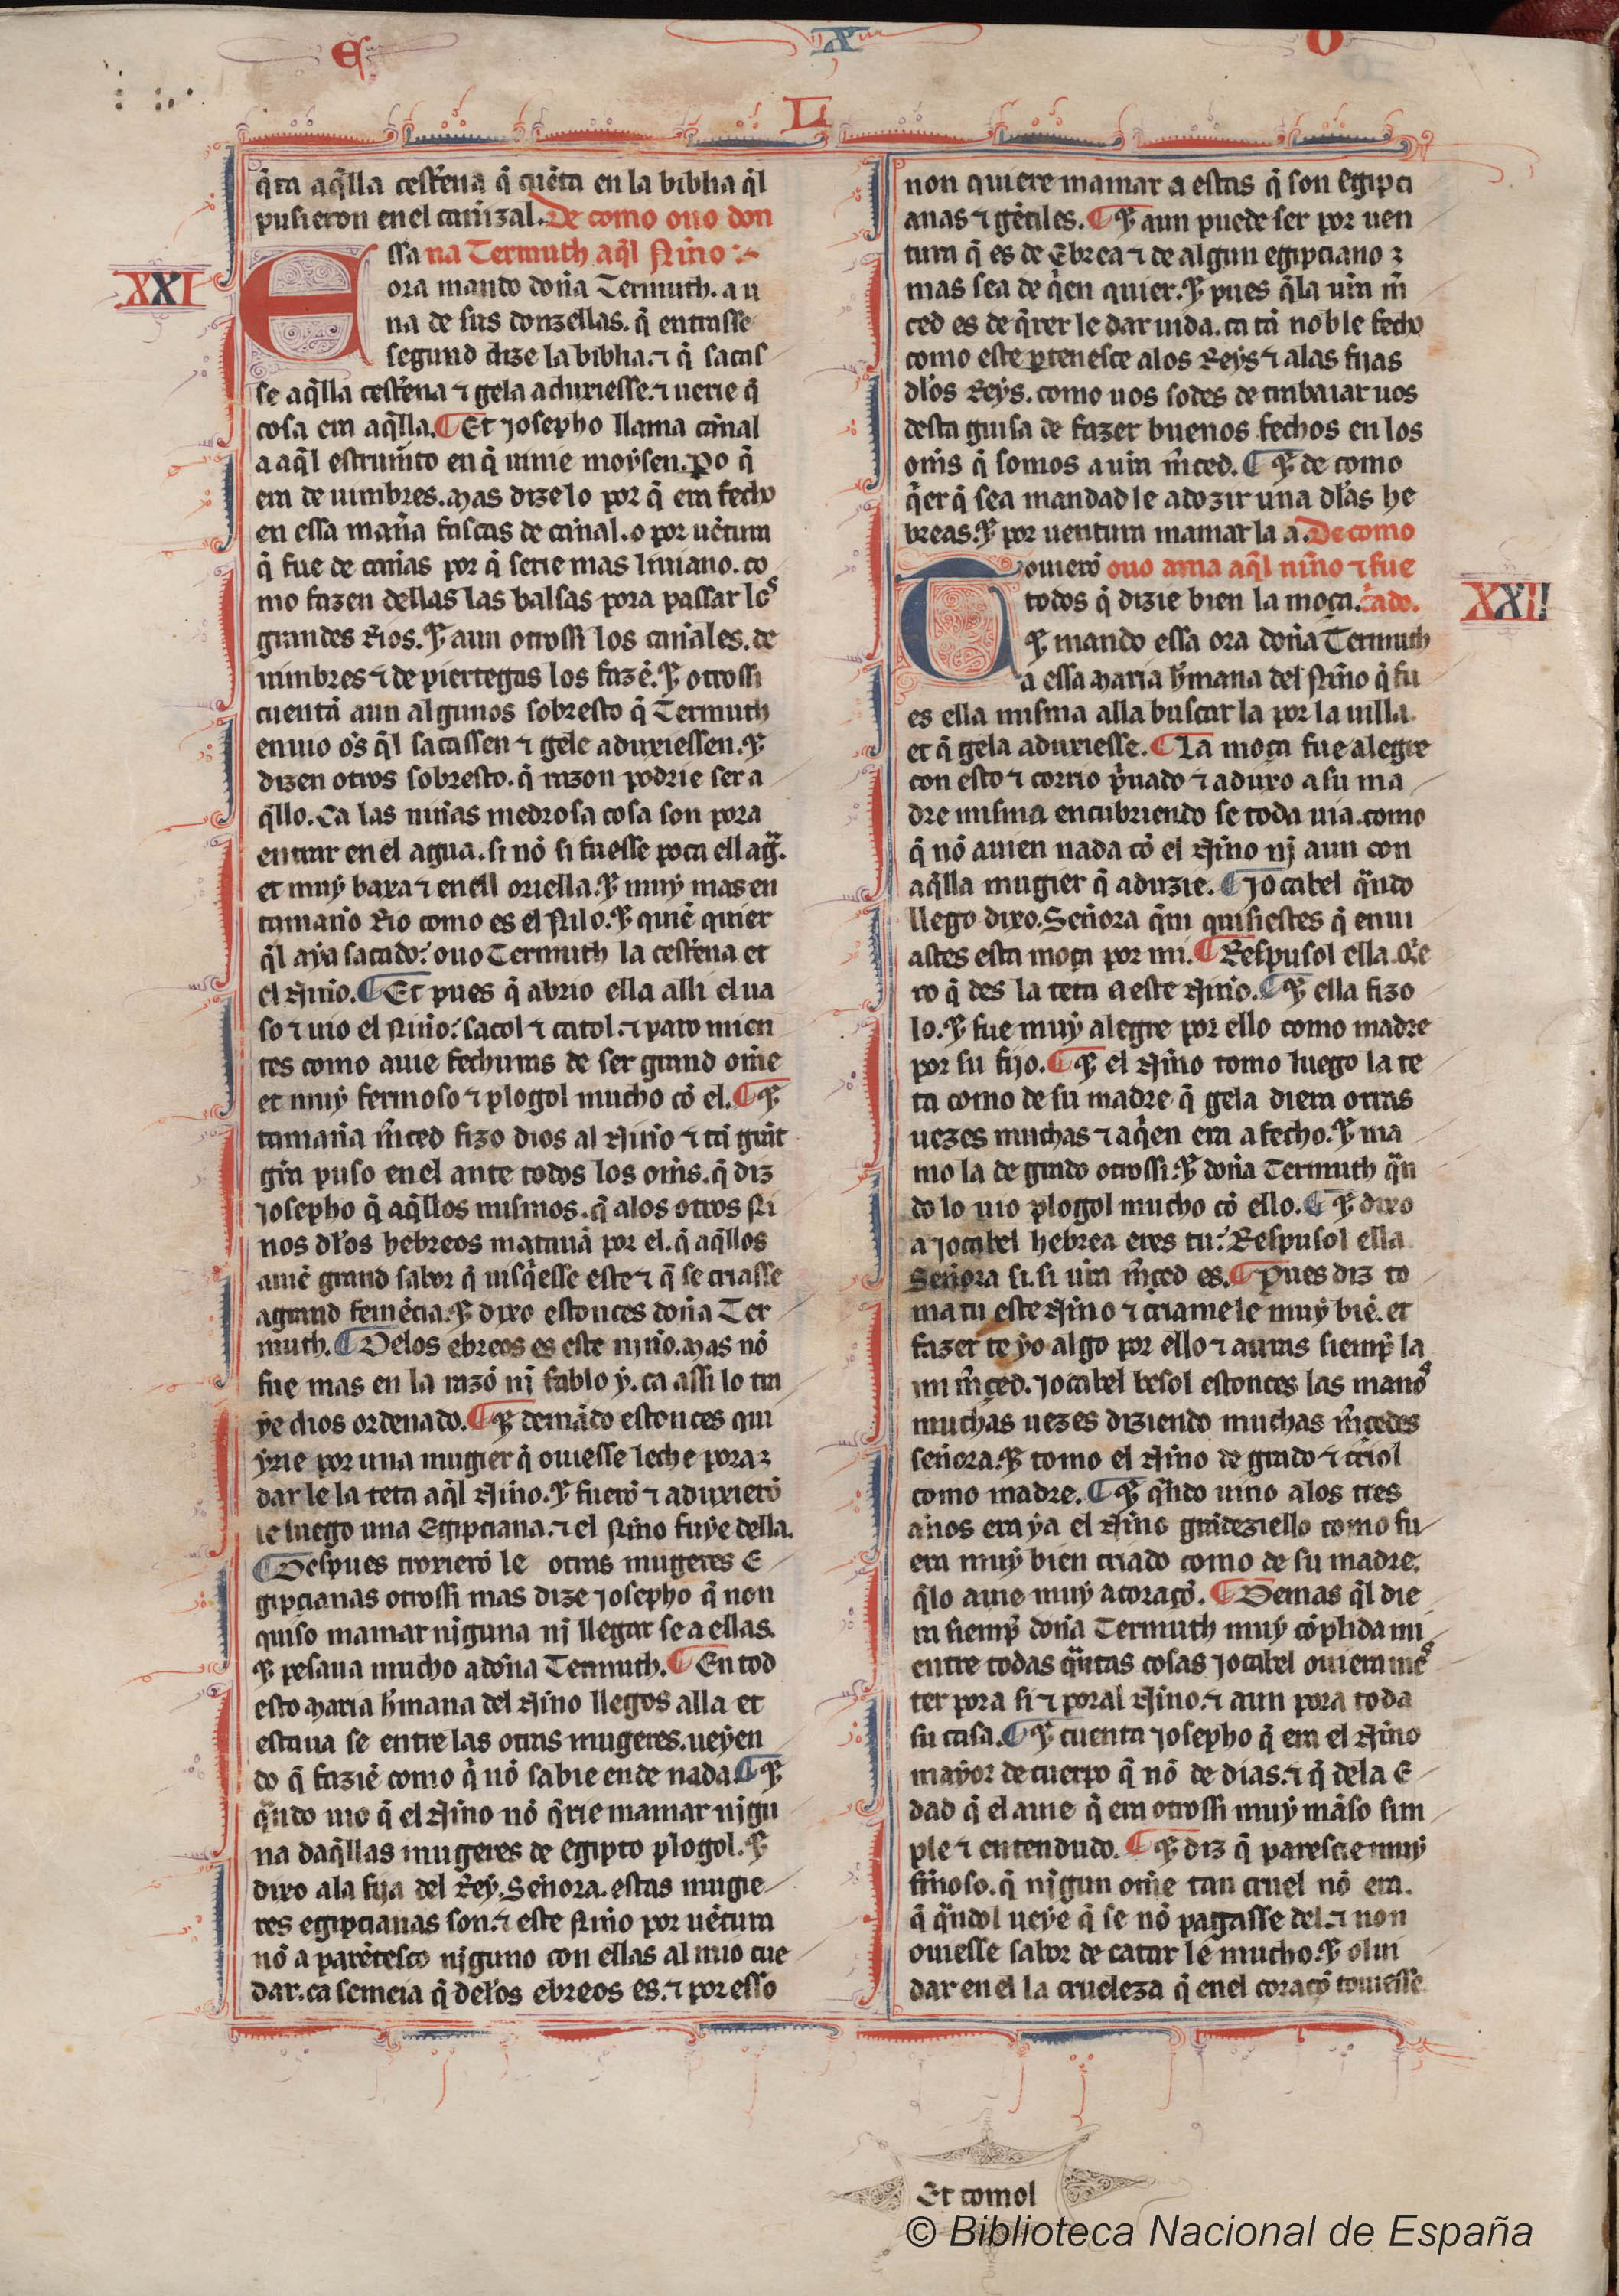 E
X
O
L
q̃ta aq̃lla cestiella q̃ cuẽta en la biblia q̃l
pusieron en el cañizal. De como ouo don
ssa na Termuth aq̃l Niño
XXI
E
ora mando doña Termuth. a u
na de sus donzellas. q̃ entrasse
segund dize la biblia. ⁊ q̃ sacas
se aq̃lla cestiella ⁊ gela aduxiesse. ⁊ uerie q̃
cosa era aq̃lla. Et josepho llama cañal
a aq̃l estrumẽto en q̃ uinie moysen. Po q̃
era de uimbres. Mas dizelo por q̃ era fecho
en essa maña fascas de cañal. o por uẽtura
q̃ fue de cañas por q̃ serie mas liuiano. co
mo fazen dellas las balsas pora passar los
grandes Rios. ⁊ aun otrossi los cañales. de
uimbres ⁊ de piertegas los fazẽ. ⁊ otrossi
cuentã aun algunos sobresto q̃ Termuth
enuio oms q̃l sacassen ⁊ gele aduxiessen. ⁊
dizen otros sobresto. q̃ razon podrie ser a
q̃llo. Ca las niñas medrosa cosa son pora
entrar en el agua. si nõ si fuesse poca ell aḡ.
et muy baxa ⁊ en ell oriella. ⁊ muy mas en
tamaño Rio como es el Nilo. ⁊ quiẽ quier
q̃l aya sacado. ouo Termuth la cestiella et
el Niño. Et pues q̃ abrio ella alli el ua
so ⁊ uio el Niño. sacol ⁊ catol. ⁊ paro mien
tes como auie fechuras de ser grand ome
et muy fermoso ⁊ plogol mucho cõ el. ⁊
tamaña m̃ced fizo dios al Niño ⁊ tã grãt
gr̃a puso en el ante todos los oms. q̃ diz
josepho q̃ aq̃llos mismos. q̃ alos otros Ni
nos dlos hebreos matauã por el. q̃ aq̃llos
auiẽ grand sabor q̃ uisq̃esse este ⁊ q̃ se criasse
a grand femẽcia. ⁊ dixo estonces doña Ter
muth. Delos ebreos es este niño. Mas nõ
fue mas en la razõ nj fablo y. ca assi lo tra
ye dios ordenado. ⁊ demãdo estonces qui
yrie por una mugier q̃ ouiesse leche pora
dar le la teta aq̃l Niño. ⁊ fuerõ ⁊ aduxierõ
le luego una Egipciana. ⁊ el Niño fuye della.
Despues troxierõ le otras mugeres E
gipcianas otrossi mas dize josepho q̃ non
quiso mamar njguna nj llegar se a ellas.
⁊ pesaua mucho a doña Termuth. En tod
esto Maria h̃mana del Niño llegos alla et
estaua se entre las otras mugeres. ueyen
do q̃ faziẽ como q̃ nõ sabie ende nada. ⁊
q̃ndo uio q̃ el Niño nõ q̃rie mamar njgu
na daq̃llas mugeres de egipto plogol. ⁊
dixo ala fija del Rey. Señora. estas mugie
res egipcianas son. ⁊ este Niño por uẽtura
nõ a parẽtesco njguno con ellas al mio cue
dar. ca semeia q̃ delos ebreos es. ⁊ por esso
non quiere mamar a estas q̃ son egipci
anas ⁊ gẽtiles. ⁊ aun puede ser por uen
tura q̃ es de Ebrea ⁊ de algun egipciano
mas sea de q̃en quier. ⁊ pues q̃la ur̃a m̃
ced es de q̃rer le dar uida. ca tã noble fecho
como este ꝑtenesce alos Reys ⁊ alas fijas
dlos Reys. como uos sodes de trabaiar uos
desta guisa de fazer buenos fechos en los
oms q̃ somos a ur̃a m̃ced. ⁊ de como
q̃er q̃ sea mandad le adozir una dlas he
breas. ⁊ por uentura mamar la a. De como
T
ouierõ ouo ama aq̃l niño ⁊ fue
todos q̃ dizie bien la moça. c̃ado.
XXII
⁊ mando essa ora doña Termuth
a essa Maria h̃mana del Niño q̃ fu
es ella misma alla buscar la por la uilla.
et q̃ gela aduxiesse. La moça fue alegre
con esto ⁊ corrio p̃uado ⁊ aduxo a su ma
dre misma encubriendo se toda uia. como
q̃ nõ auien nada cõ el Niño nj aun con
aq̃lla mugier q̃ aduzie. Jocabel q̃ndo
llego dixo. Señora q̃m quisiestes q̃ enui
astes esta moça por mi. Respusol ella. Q̃e
ro q̃ des la teta a este Niño. ⁊ ella fizo
lo. ⁊ fue muy alegre por ello como madre
por su fijo. ⁊ el Niño tomo luego la te
ta como de su madre q̃ gela diera otras
uezes muchas ⁊ aq̃en era a fecho. ⁊ ma
mo la de grado otrossi. ⁊ doña Termuth q̃n
do lo uio plogol mucho cõ ello. ⁊ dixo
a jocabel hebrea eres tu. Respusol ella
Señora si. si ur̃a m̃ced es. Pues diz to
ma tu este Niño ⁊ criamele muy biẽ. et
fazer te yo algo por ello ⁊ auras siemp̃ la
mi m̃ced. jocabel besol estonces las manos
muchas uezes diziendo muchas m̃cedes
señora. ⁊ tomo el Niño de grado ⁊ criol
como madre. ⁊ q̃ndo uino alos tres
años era ya el Niño grãdeziello como fu
era muy bien criado como de su madre.
q̃lo auie muy a coraçõ. Demas q̃l die
ra siemp̃ doña Termuth muy cõplida mi
entre todas q̃ntas cosas jocabel ouiera mẽs
ter pora si ⁊ poral Niño. ⁊ aun pora toda
su casa. ⁊ cuenta josepho q̃ era el Niño
mayor de cuerpo q̃ nõ de dias. ⁊ q̃ dela e
dad q̃ el auie q̃ era otrossi muy mãso sim
ple ⁊ entendudo. ⁊ diz q̃ parescie muy
fmoso. q̃ njgun ome tan cruel nõ era.
q̃ q̃ndol ueye q̃ se nõ pagasse del. ⁊ non
ouiesse sabor de catar le mucho. ⁊ olui
dar en el la crueleza q̃ en el coraçõ touiesse.
Et comol
© Biblioteca Nacional de España